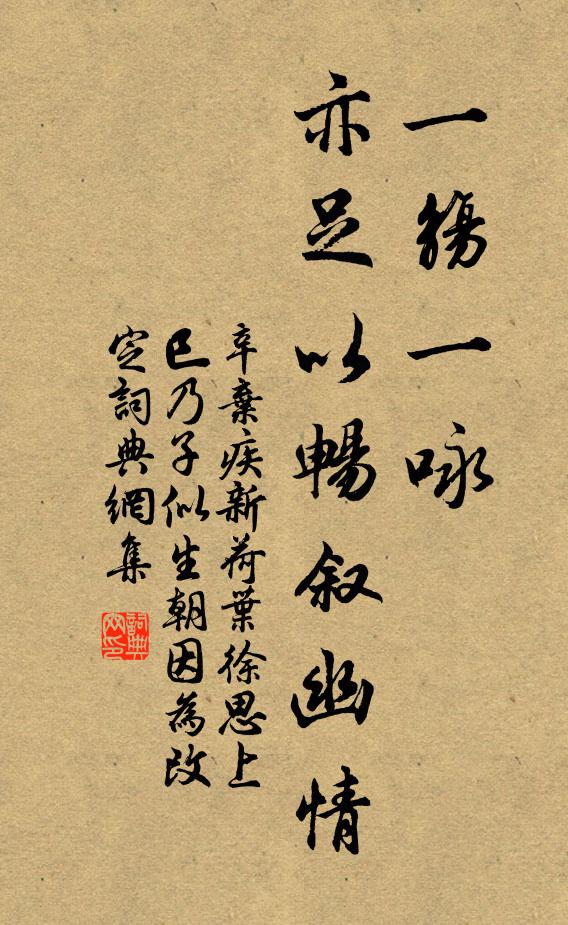 一觴一咏
亦足以暢叙幽情
辛棄疾新荷葉徐思上
巳乃子似生朝因為改
定詞典網集
詞典網印